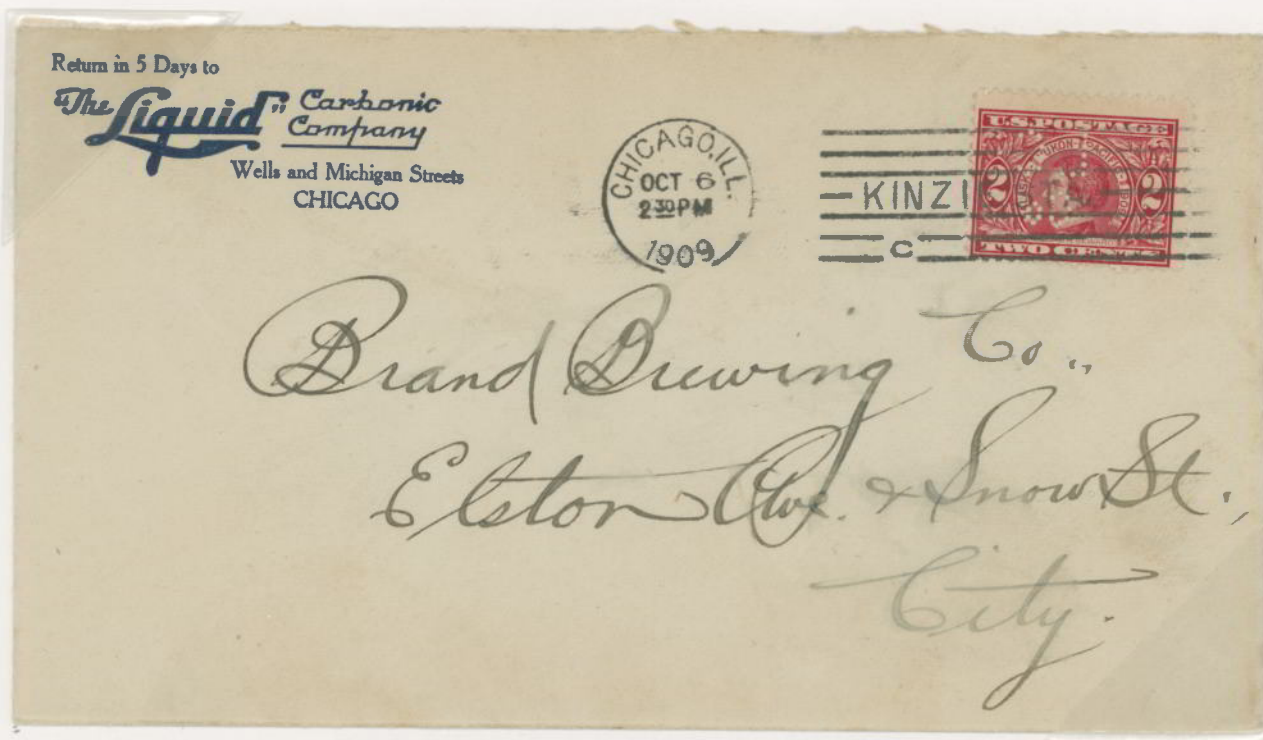 Return in 5 Days to
"The Liquid" Carbonic
Company
Wells and Michigan Streets
CHICAGO
CHICAGO, ILL.
OCT 6
2 30 PM
1909
KINZI
C
U.S. POSTAGE
2 2
TWO CENTS
Brand Brewing Co.,
Elston Ave. & Snow St.,
City.